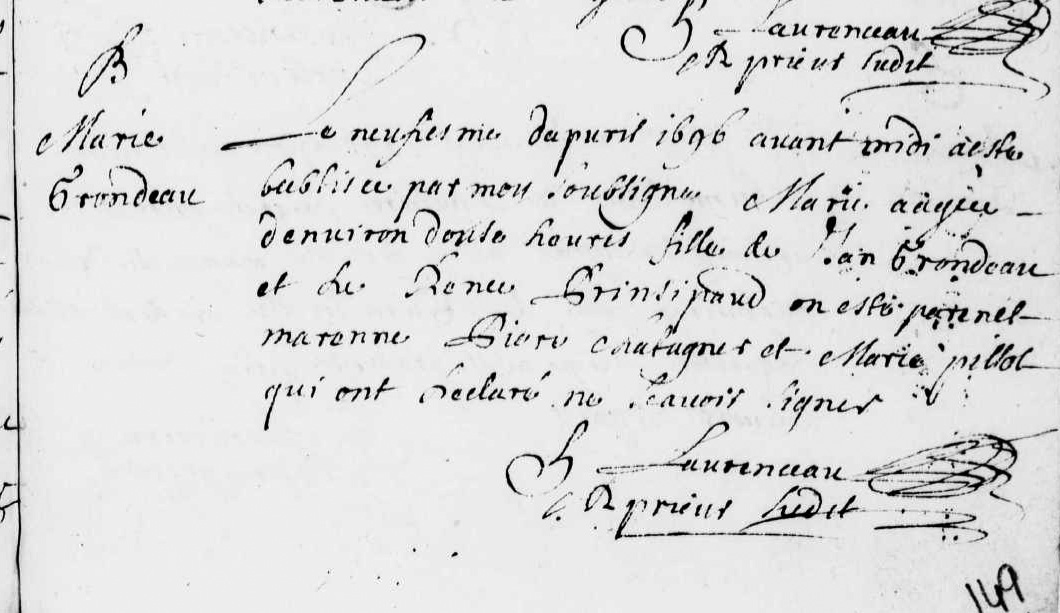 Laurenceau
R prieur susdit
B
Marie
Grondeau
Le neufiesme dapvril 1696 avant midi a este
babtisee par moy soubsigne Marie aagee
denviron douse heures fille de Jan Grondeau
et de Renee Prinsipaud on este parein et
marenne Piere Chatagner et Marie pillot
qui ont declaré ne scavoir signer
Laurenceau
R prieur susdit
149